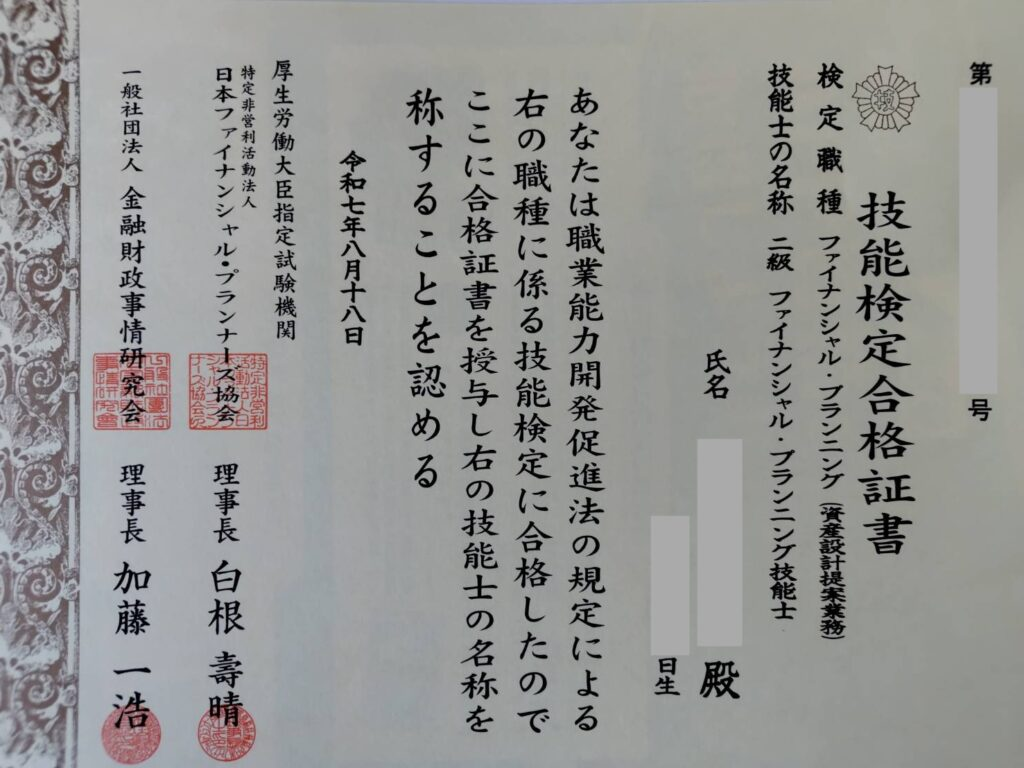 第 号
技能検定合格証書
技
検定職種 ファイナンシャル・プランニング(資産設計提案業務)
技能士の名称 二級 ファイナンシャル・プランニング技能士
氏名 殿
日生
あなたは職業能力開発促進法の規定による
右の職種に係る技能検定に合格したので
ここに合格証書を授与し右の技能士の名称を
称することを認める
令和七年八月十八日
厚生労働大臣指定試験機関
特定非営利活動法人
日本ファイナンシャル・プランナーズ協会 理事長 白根 壽晴
一般社団法人 金融財政事情研究会 理事長 加藤 一浩